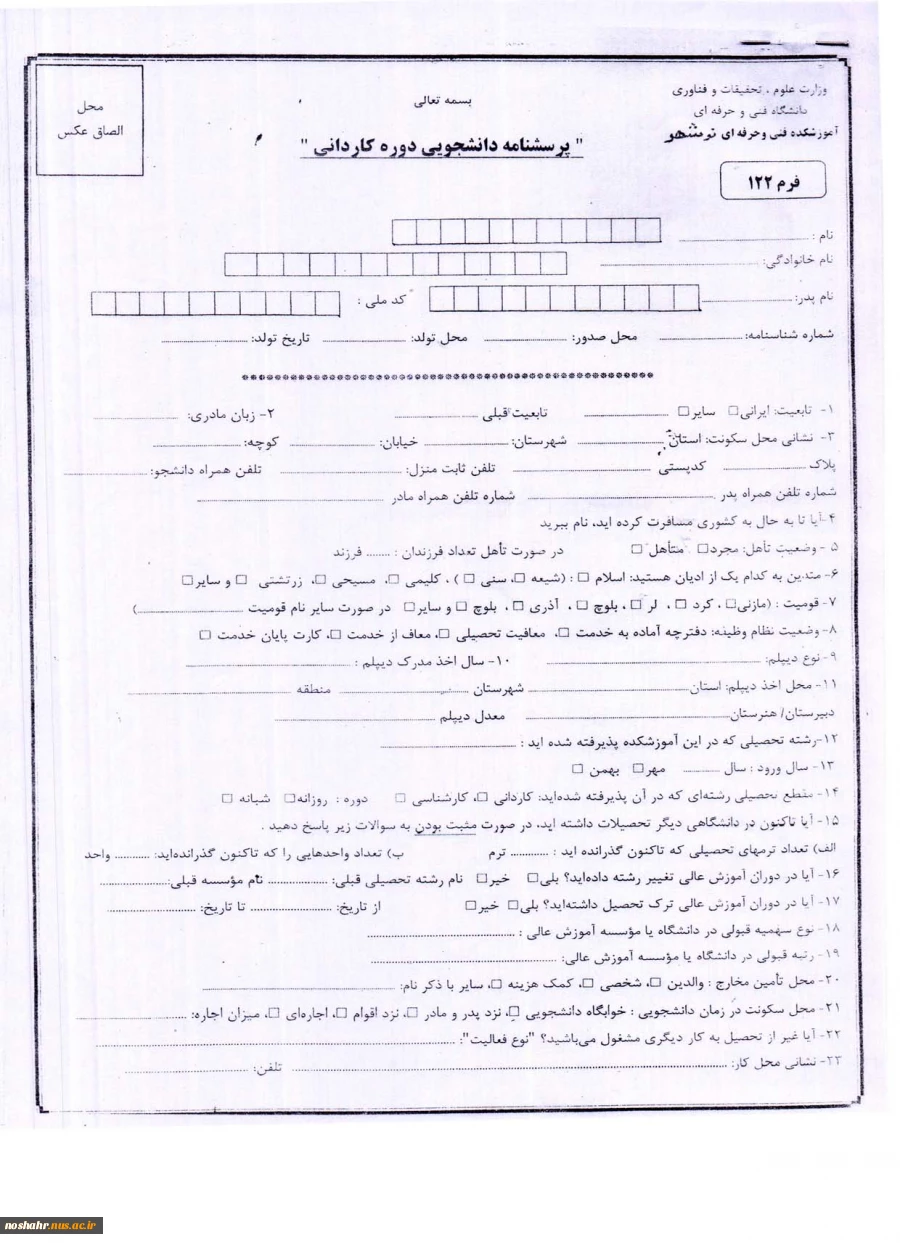 بسمه تعالی
وزارت علوم ، تحقیقات و فناوری
دانشگاه فنی و حرفه ای
آموزشکده فنی و حرفه ای نوشهر
محل
الصاق عکس
" پرسشنامه دانشجویی دوره کاردانی "
فرم ۱۲۲
نام :
نام خانوادگی:
نام پدر: کد ملی :
شماره شناسنامه: محل صدور: محل تولد: تاریخ تولد:
۱- تابعیت: ایرانی□ سایر□ تابعیت قبلی ۲- زبان مادری:
۳- نشانی محل سکونت: استان شهرستان: خیابان: کوچه:
پلاک کدپستی تلفن ثابت منزل: تلفن همراه دانشجو:
شماره تلفن همراه پدر شماره تلفن همراه مادر
۴-آیا تا به حال به کشوری مسافرت کرده اید، نام ببرید
۵ - وضعیت تأهل: مجرد□ متأهل □ در صورت تأهل تعداد فرزندان : ....... فرزند
۶- متدین به کدام یک از ادیان هستید: اسلام □ : (شیعه □، سنی □ ) ، کلیمی □، مسیحی □، زرتشتی □ و سایر□
۷- قومیت : (مازنی□ ، کرد □، لر □ ، بلوچ □، آذری □ ، بلوچ □ و سایر□ در صورت سایر نام قومیت ....................)
۸- وضعیت نظام وظیفه: دفترچه آماده به خدمت □، معافیت تحصیلی □، معاف از خدمت □، کارت پایان خدمت □
۹- نوع دیپلم: ۱۰- سال اخذ مدرک دیپلم :
۱۱- محل اخذ دیپلم: استان شهرستان منطقه
دبیرستان/ هنرستان معدل دیپلم
۱۲-رشته تحصیلی که در این آموزشکده پذیرفته شده اید :
۱۳- سال ورود : سال مهر□ بهمن □
۱۴- مقطع تحصیلی رشته‌ای که در آن پذیرفته شده‌اید: کاردانی □، کارشناسی □ دوره : روزانه□ شبانه □
۱۵- آیا تاکنون در دانشگاهی دیگر تحصیلات داشته اید، در صورت مثبت بودن به سوالات زیر پاسخ دهید .
الف) تعداد ترمهای تحصیلی که تاکنون گذرانده اید : ............ ترم ب) تعداد واحدهایی را که تاکنون گذرانده‌اید: ........... واحد
۱۶- آیا در دوران آموزش عالی تغییر رشته داده‌اید؟ بلی□ خیر□ نام رشته تحصیلی قبلی: نام مؤسسه قبلی:
۱۷- آیا در دوران آموزش عالی ترک تحصیل داشته‌اید؟ بلی□ خیر□ از تاریخ: تا تاریخ:
۱۸- نوع سهمیه قبولی در دانشگاه یا مؤسسه آموزش عالی :
۱۹- رتبه قبولی در دانشگاه یا مؤسسه آموزش عالی:
۲۰- محل تأمین مخارج : والدین □، شخصی □، کمک هزینه □، سایر با ذکر نام:
۲۱- محل سکونت در زمان دانشجویی : خوابگاه دانشجویی □، نزد پدر و مادر □، نزد اقوام □، اجاره‌ای □، میزان اجاره:
۲۲- آیا غیر از تحصیل به کار دیگری مشغول می‌باشید؟ "نوع فعالیت":
۲۳- نشانی محل کار: تلفن:
noshahr.nus.ac.ir